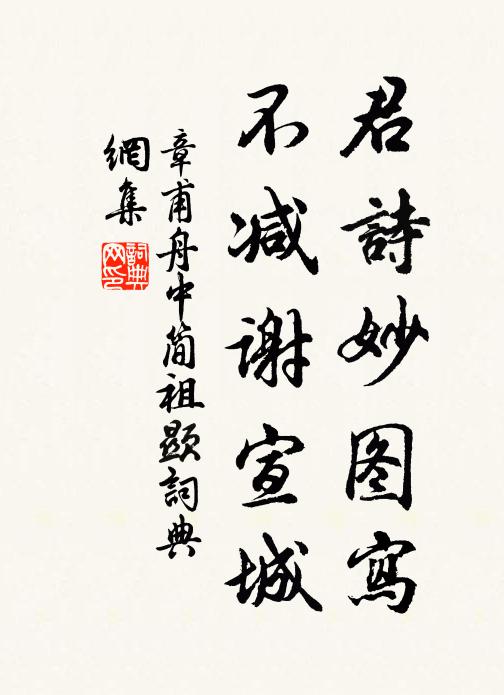 君詩妙图寫
不减谢宣城
章甫舟中简祖顕詞典
網集
詞典
网印